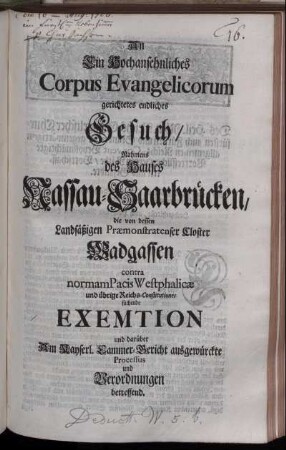 16.
An
Ein Hochansehnliches
Corpus Evangelicorum
gerichtetes endliches
Gesuch/
Nahmens
des Hauses
Nassau-Saarbrücken/
die von dessen
Landsäßigen Præmonstratenser Closter
Wadgassen
contra
normam Pacis Westphalicæ
und übrige Reichs-Constitutiones
suchende
EXEMTION
und darüber
Am Kayserl. Cammer-Gericht ausgewürckte
Processus
und
Verordnungen
betreffend.
Deduct. W. 5. 1.